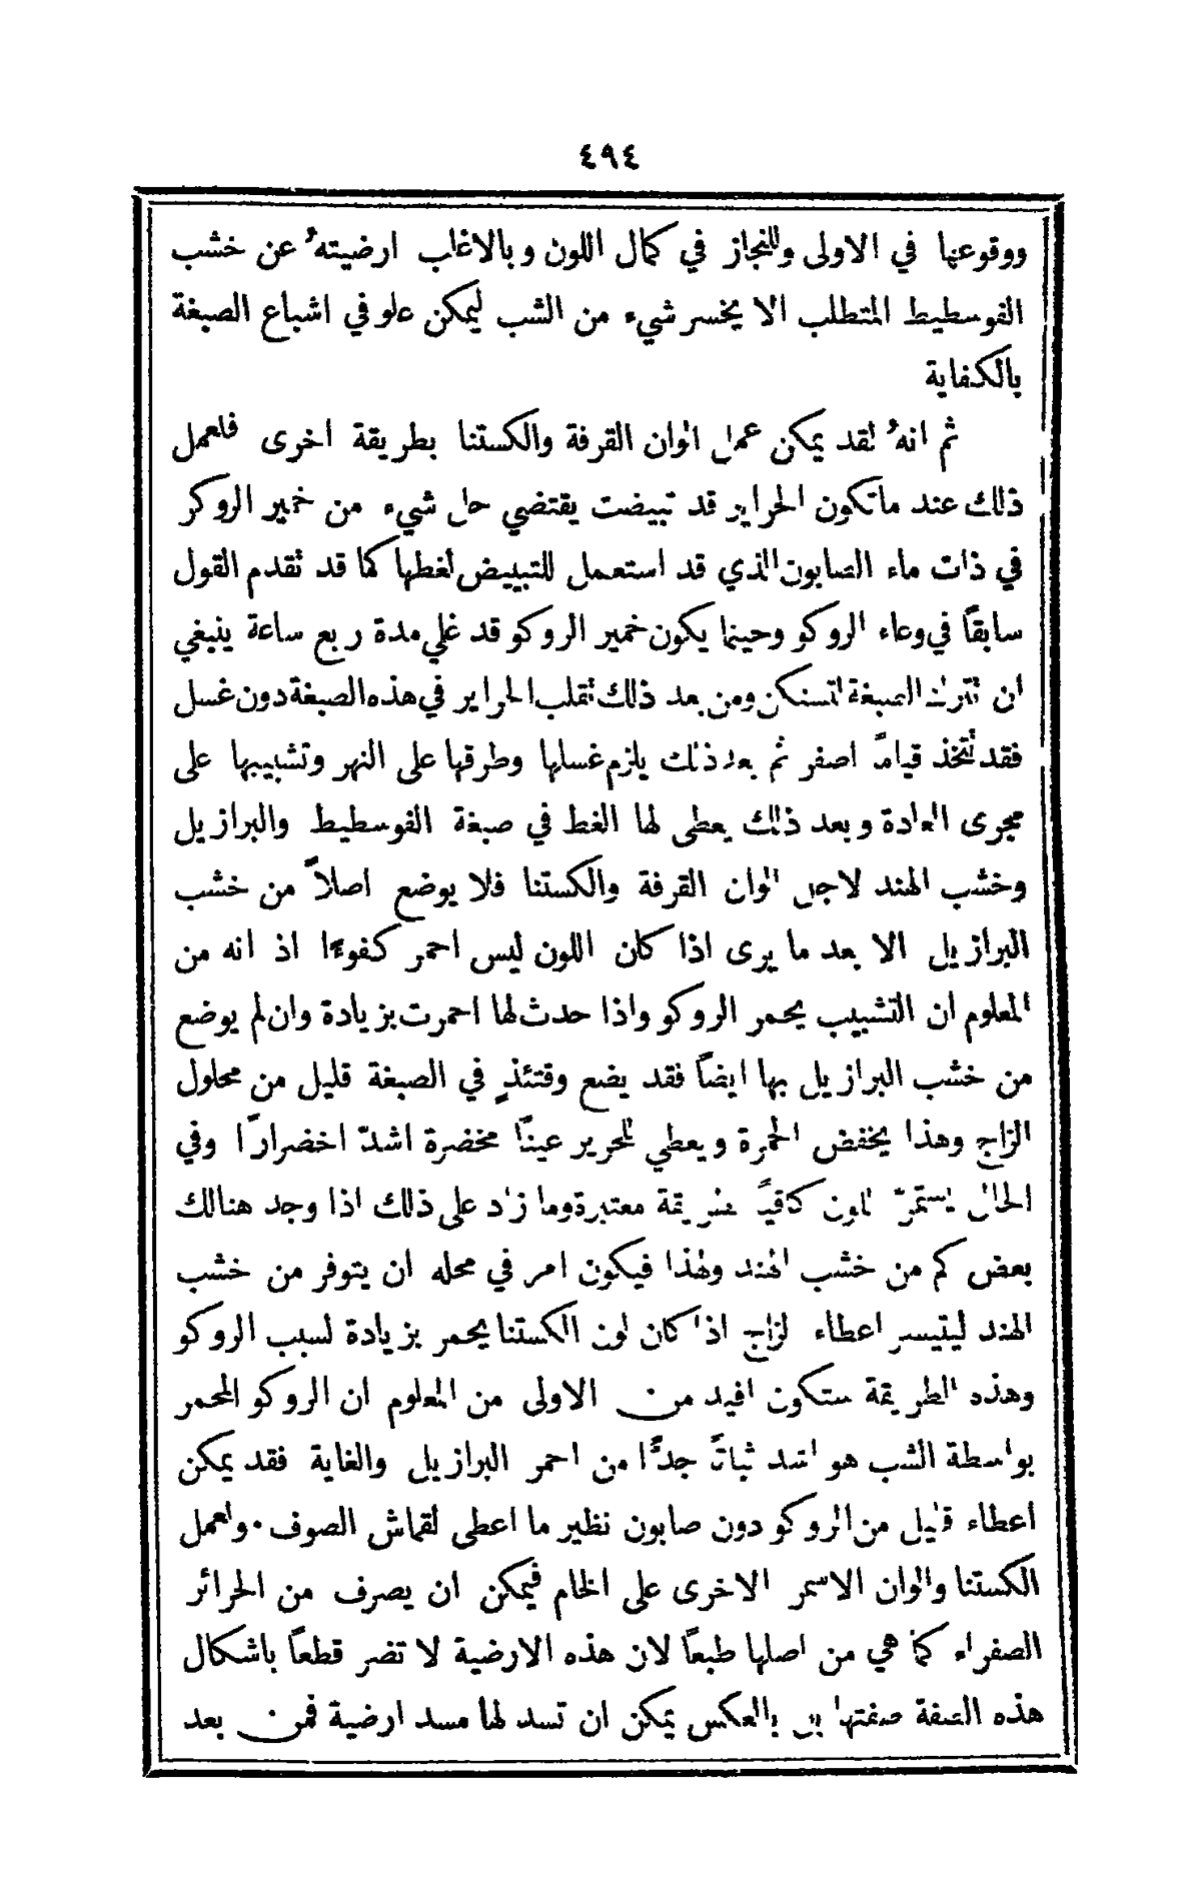 ٤٩٤
ووقوعها في الاولى وللنجاز في كمال اللون وبالاغلب ارضيتهُ عن خشب
الفوسطيط المتطلب الا يخسر شيء من الشب ليمكن علو في اشباع الصبغة
بالكفاية
ثم انهُ لقد يمكن عمل الوان القرفة والكستنا بطريقة اخرى فلعمل
ذلك عند ماتكون الحراير قد تبيضت يقتضي حل شيء من خمير الروكر
في ذات ماء الصابون الذي قد استعمل للتبييض لغطها كما قد تقدم القول
سابقاً في وعاء الروكو وحينما يكون خمير الروكو قد غلي مدة ربع ساعة ينبغي
ان تترك الصبغة لتسنكن ومن بعد ذلك تقلب الحراير في هذه الصبغة دون غسل
فقد تتخذ قياماً اصفر ثم بعد ذلك يلزم غسلها وطرقها على النهر وتشبيبها على
مجرى العادة وبعد ذلك يعطى لها الغط في صبغة الفوسطيط والبرازيل
وخشب الهند لاجل الوان القرفة والكستنا فلا يوضع اصلاً من خشب
البرازيل الا بعد ما يرى اذا كان اللون ليس احمر كفوءًا اذ انه من
المعلوم ان التشبيب يحمر الروكو واذا حدث لها احمرت بزيادة وان لم يوضع
من خشب البرازيل بها ايضاً فقد يضع وقتئذٍ في الصبغة قليل من محلول
الزاج وهذا يخفض الحمرة ويعطي للحرير عيناً مخضرة اشدّ اخضراراً وفي
الحال يستمرّ لمعتبرة وما زاد على ذلك اذا وجد هنالك
بعض كم من خشب الهند ولهذا فيكون امر في محله ان يتوفر من خشب
الهند ليتيسر اعطاء لزاج اذا كان لون الكستنا يحمر بزيادة لسبب الروكو
وهذه الطريقة ستكون افيد من الاولى من المعلوم ان الروكو المحمر
بواسطة الشب هو اشد ثباتاً جدًّا من احمر البرازيل والغاية فقد يمكن
اعطاء قليل من الروكو دون صابون نظير ما اعطى لقماش الصوف ٠ ولعمل
الكستنا والوان الاسمر الاخرى على الخام فيمكن ان يصرف من الحرائر
الصفراء كما هي من اصلها طبعاً لان هذه الارضية لا تضر قطعاً باشكال
هذه الصفة صفتها بل بالعكس يمكن ان تسد لها مسد ارضية فمن بعد